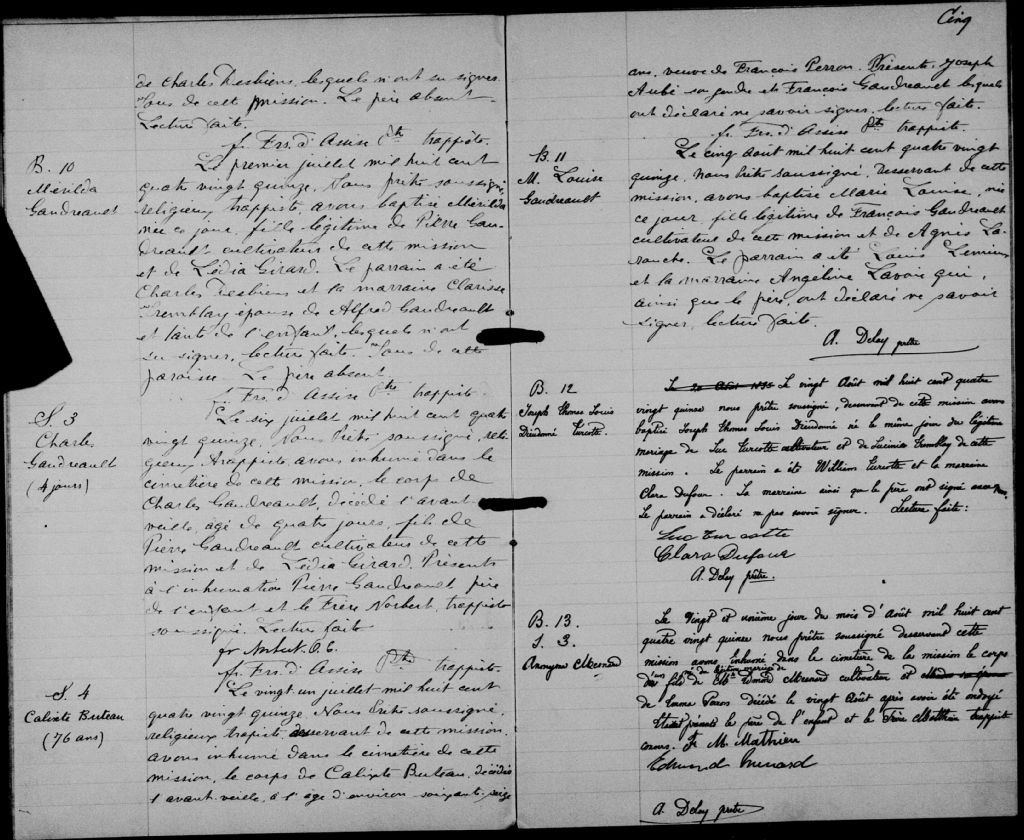 de Charles Desbiens, lesquels n'ont su signer.
Tous de cette mission. Le père absent.
Lecture faite.
fr. Frs. d'Assise Ptre trappiste.
B. 10
Mérilda
Gaudreault
Le premier juillet mil huit cent
quatre vingt quinze, Nous prêtre soussigné,
religieux trappiste, avons baptisé Mérilda
née ce jour, fille légitime de Pierre Gau-
dreault cultivateur de cette mission
et de Lédia Girard. Le parrain a été
Charles Desbiens et la marraine Clarisse
Tremblay épouse de Alfred Gaudreault
et tante de l'enfant, lesquels n'ont
su signer, lecture faite. Tous de cette
paroisse. Le père absent.
fr. Frs. d'Assise Ptre trappiste.
S. 3
Charles
Gaudreault
(4 jours)
Le six juillet mil huit cent quatre
vingt quinze, Nous Prêtre soussigné, reli-
gieux trappiste, avons inhumé dans le
cimetière de cette mission, le corps de
Charles Gaudreault, décédé l'avant
veille, agé de quatre jours, fils de
Pierre Gaudreault cultivateur de cette
mission et de Lédia Girard. Présents
à l'inhumation Pierre Gaudreault père
de l'enfant et le Frère Norbert, trappiste
soussigné. Lecture faite
fr Norbert O.C.
fr. Frs. d'Assise Ptre trappiste.
S. 4
Calixte Buteau
(76 ans)
Le vingt un juillet mil huit cent
quatre vingt quinze. Nous Prêtre soussigné,
religieux trapiste desservant de cette mission,
avons inhumé dans le cimetière de cette
mission, le corps de Calixte Buteau, décédée
l'avant-veille, à l'âge d'environ soixante-seize
Cinq
ans, veuve de François Perron. Présents Joseph
Aubé son gendre et François Gaudreault lesquels
ont déclaré ne savoir signer, lecture faite.
fr. Frs. d'Assise Ptre trappiste.
B. 11
M. Louise
Gaudreault
Le cinq août mil huit cent quatre vingt
quinze, nous Prêtre soussigné, Desservant de cette
mission, avons baptisé Marie Louise, née
ce jour, fille légitime de François Gaudreault
cultivateur de cette mission et de Agnès La-
rouche. Le parrain a été Louis Lemieux
et la marraine Angéline Lavoie qui,
ainsi que le père, ont déclaré ne savoir
signer, lecture faite.
A. Delay prêtre
B. 12
Joseph Thomas Louis
Dieudonné Turcotte
Le 20 Août 1895 Le vingt Août mil huit cent quatre
vingt quinze nous prêtre soussigné, desservant de cette mission avons
baptisé Joseph Thomas Louis Dieudonné né le même jour du légitime
mariage de Luc Turcotte cultivateur et de Lucinda Tremblay de cette
mission. Le parrain a été William Turcotte et la marraine
Clara Dufour. La marraine ainsi que le père ont signé avec nous.
Le parrain a déclaré ne pas savoir signer. Lecture faite:
Luc Turcotte
Clara Dufour
A. Delay prêtre.
B. 13.
S. 3.
Anonyme Menard
Le Vingt et unième jour du mois d'Août mil huit cent
quatre vingt quinze nous prêtre soussigné desservant cette
mission avons inhumé dans le cimetière de la mission le corps
d'un fils du légitime mariage de Edmond Menard cultivateur et
de Emma Paros décédé le vingt Août après avoir été ondoyé
Etaient présents le père de l'enfant et le Frère Matthieu trappiste
convers. Fr M. Mathieu
Edmond Menard
A. Delay prêtre